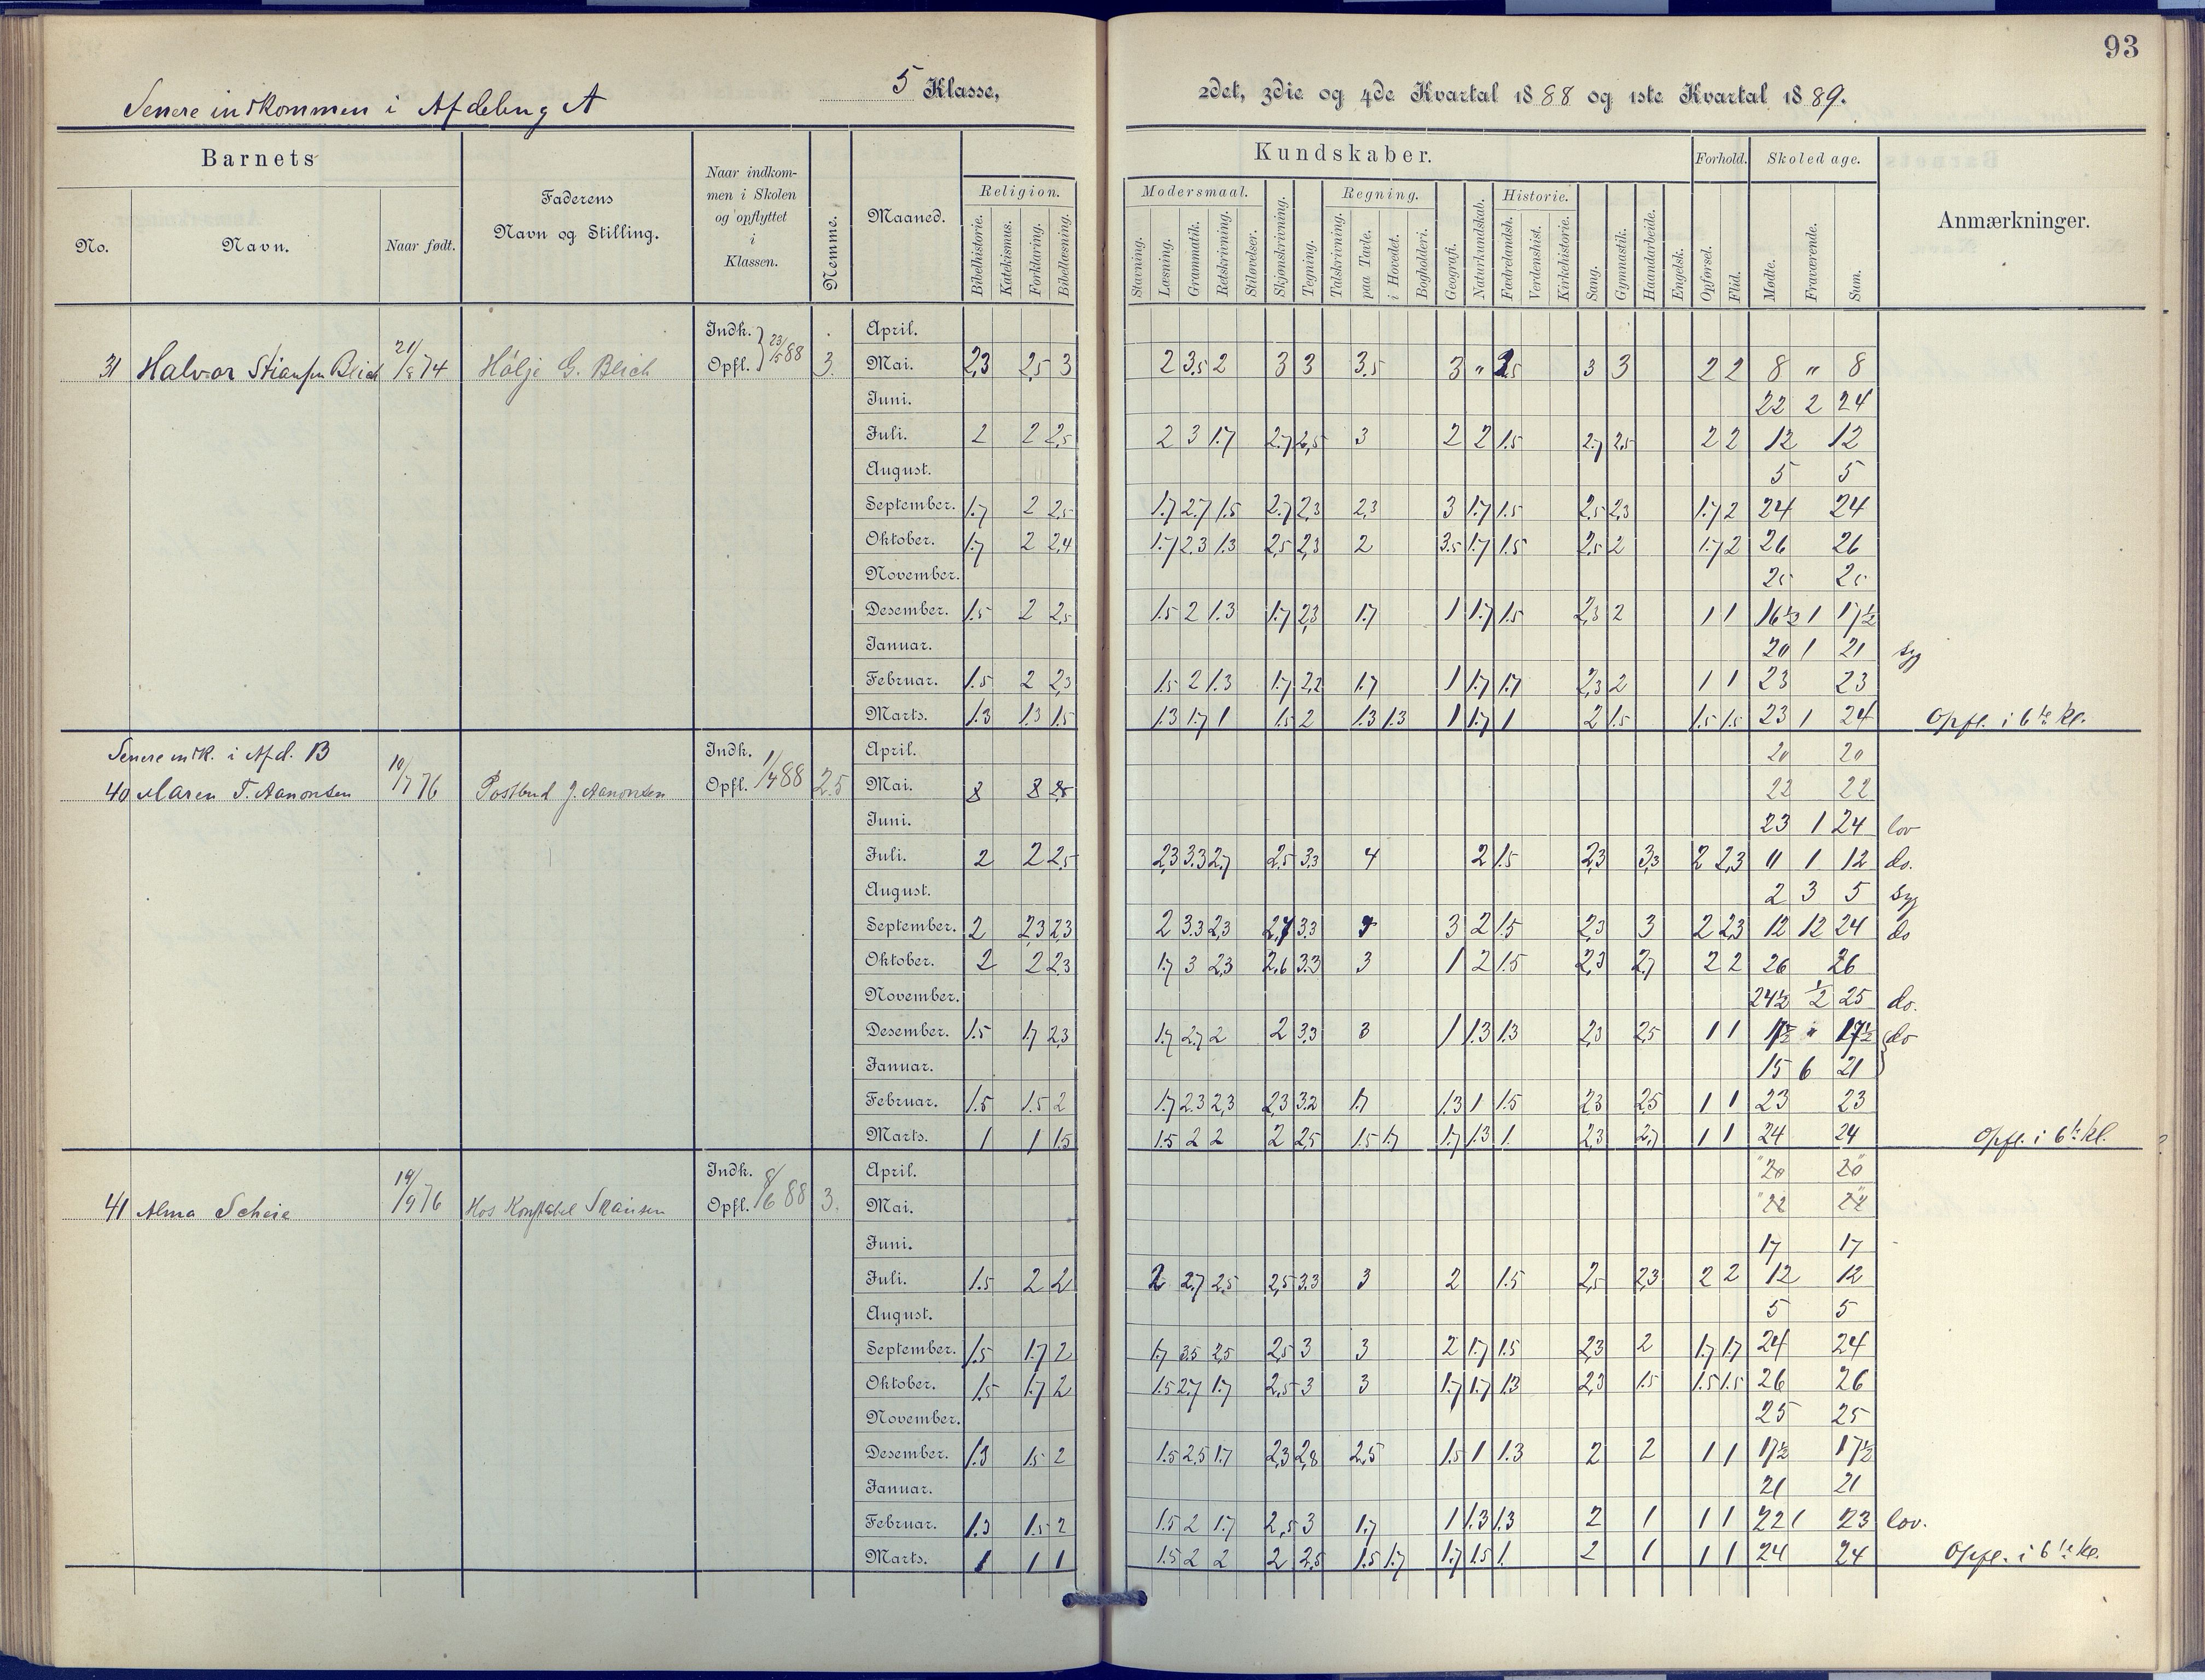 93
5 Klasse, 2det, 3die og 4de Kvartal 1888 og 1ste Kvartal 1889.
Senere indkommen i Afdeling A
Barnets
No. Navn. Naar født.
Faderens Navn og Stilling.
Naar indkommen i Skolen og opflyttet i Klassen.
Nemme.
Maaned.
Kundskaber.
Religion.
Bibelhistorie. Katekismus. Forklaring. Bibellæsning.
Modersmaal.
Stavning. Læsning. Grammatik. Retskrivning. Stiløvelser.
Skjønskrivning. Tegning.
Regning.
Talskrivning. paa Tavle. i Hovedet. Bogholderi.
Geografi. Naturkundskab.
Historie.
Fædrelandsh. Verdenshist. Kirkehistorie.
Sang. Gymnastik. Haandarbeide. Engelsk.
Forhold.
Opførsel. Flid.
Skoledage.
Mødte. Fraværende. Sum.
Anmærkninger.
31 Halvor Blich 74 G. Blich Indk. Opfl. 23/5 88 3.
April.
Mai. 2,3 2,5 3 2 3.5 2 3 3 3.5 3 " 3 3 2 2 8 " 8
Juni. 22 2 24
Juli. 2 2 2,5 2 3 1.7 2.7 2,5 3 2 2 1.5 2.7 2,5 2 2 12 12
August. 5 5
September. 1.7 2 2,5 1.7 2.7 1.5 2.7 2,3 2,3 3 1.7 1.5 2,5 2,3 1.7 2 24 24
Oktober. 1.7 2 2,4 1.7 2,3 1.3 2,5 2,3 2 3.5 1.7 1.5 2.5 2 1.7 2 26 26
November. 25 25
Desember. 1.5 2 2,5 1.5 2 1.3 1.7 2,3 1.7 1 1.7 1.5 2,3 2 1 1 16½ 1 17½
Januar. 20 1 21 syg
Februar. 1.5 2 2,3 1.5 2 1.3 1.7 2,2 1.7 1 1.7 1.7 2,3 2 1 1 23 23
Marts. 1.3 1.3 1.5 1.3 1.7 1 1.5 2 1.3 1.3 1 1.7 1 2 1.5 1.5 1.5 23 1 24 Opfl. i 6te Kl.
Senere indk. i Afd. B
40 Maren T. Aanonsen 10/7 76 Postbud J. Aanonsen Indk. Opfl. 88 2.5
April. 20 20
Mai. 22 22
Juni. 23 1 24 lov
Juli. 2 2 2,5 2,3 3.3 2,7 2,5 3,3 4 2 1.5 2,3 3,3 2 2,3 11 1 12 do.
August. 2 3 5 syg
September. 2 2,3 2,3 2 3.3 2,3 2,7 3.3 3 2 1.5 2,3 3 2 2,3 12 12 24 do
Oktober. 2 2 2,3 1.7 3 2,3 2.6 3.3 3 1 2 1.5 2,3 2,7 2 2 26 26
November. 24½ ½ 25 do.
Desember. 1.5 1.7 2,3 1.7 2.7 2 2 3,3 3 1 1.3 1.3 2,3 2,5 1 1 17½ " 17½ do
Januar. 15 6 21
Februar. 1.5 1.5 2 1.7 2.3 2,3 2,3 3.2 1.7 1.3 1 1.5 2,3 2,5 1 1 23 23
Marts. 1 1 1.5 1.5 2 2 2 2,5 1.5 1.7 1.7 1.3 1. 2,3 2,7 1 1 24 24 Opfl. i 6te kl.
41 Alma Scheie 19/9 76 Hos Konstabel Indk. Opfl. 8/6 88 3.
April. "20 20"
Mai. "22 22"
Juni. 17 17
Juli. 1.5 2 2 2 2.7 2,5 2,5 3.3 3 2 1.5 2,5 2,3 2 2 12 12
August. 5 5
September. 1.5 1.7 2 1.7 3.5 2,5 2,5 3 3 2 1.7 1.5 2,3 2 1.7 1.7 24 24
Oktober. 1.5 1.7 2 1.5 2.7 1.7 2,5 3 3 1.7 1.7 1.3 2,3 1.5 1.5 1.5 26 26
November. 25 25
Desember. 1.3 1.5 2 1.5 2.5 1.7 2,3 2,8 2,5 1.5 1 1.3 2 2 1 1 17½ 17½
Januar. 21 21
Februar. 1.3 1.5 2 1.5 2 1.7 2,5 3 1.7 1 1.3 1.3 2 1 1 1 22 1 23 lov.
Marts. 1 1 1 1.5 2 2 2 2,5 1.5 1.7 1.7 1.5 1. 2 1 1 1 24 24 Opfl. i 6te kl.